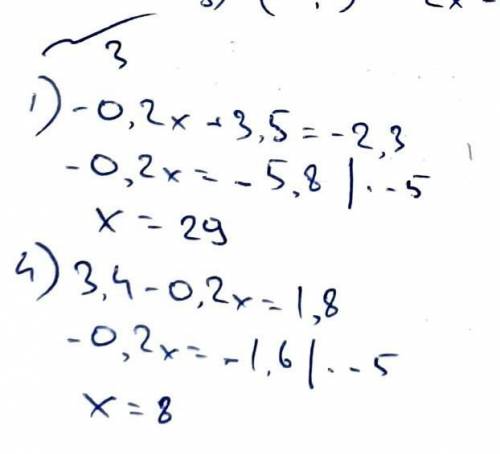 3
1) -0,2x + 3,5 = -2,3
-0,2x = -5,8 | · -5
x = 29
4) 3,4 - 0,2x = 1,8
-0,2x = -1,6 | · -5
x = 8